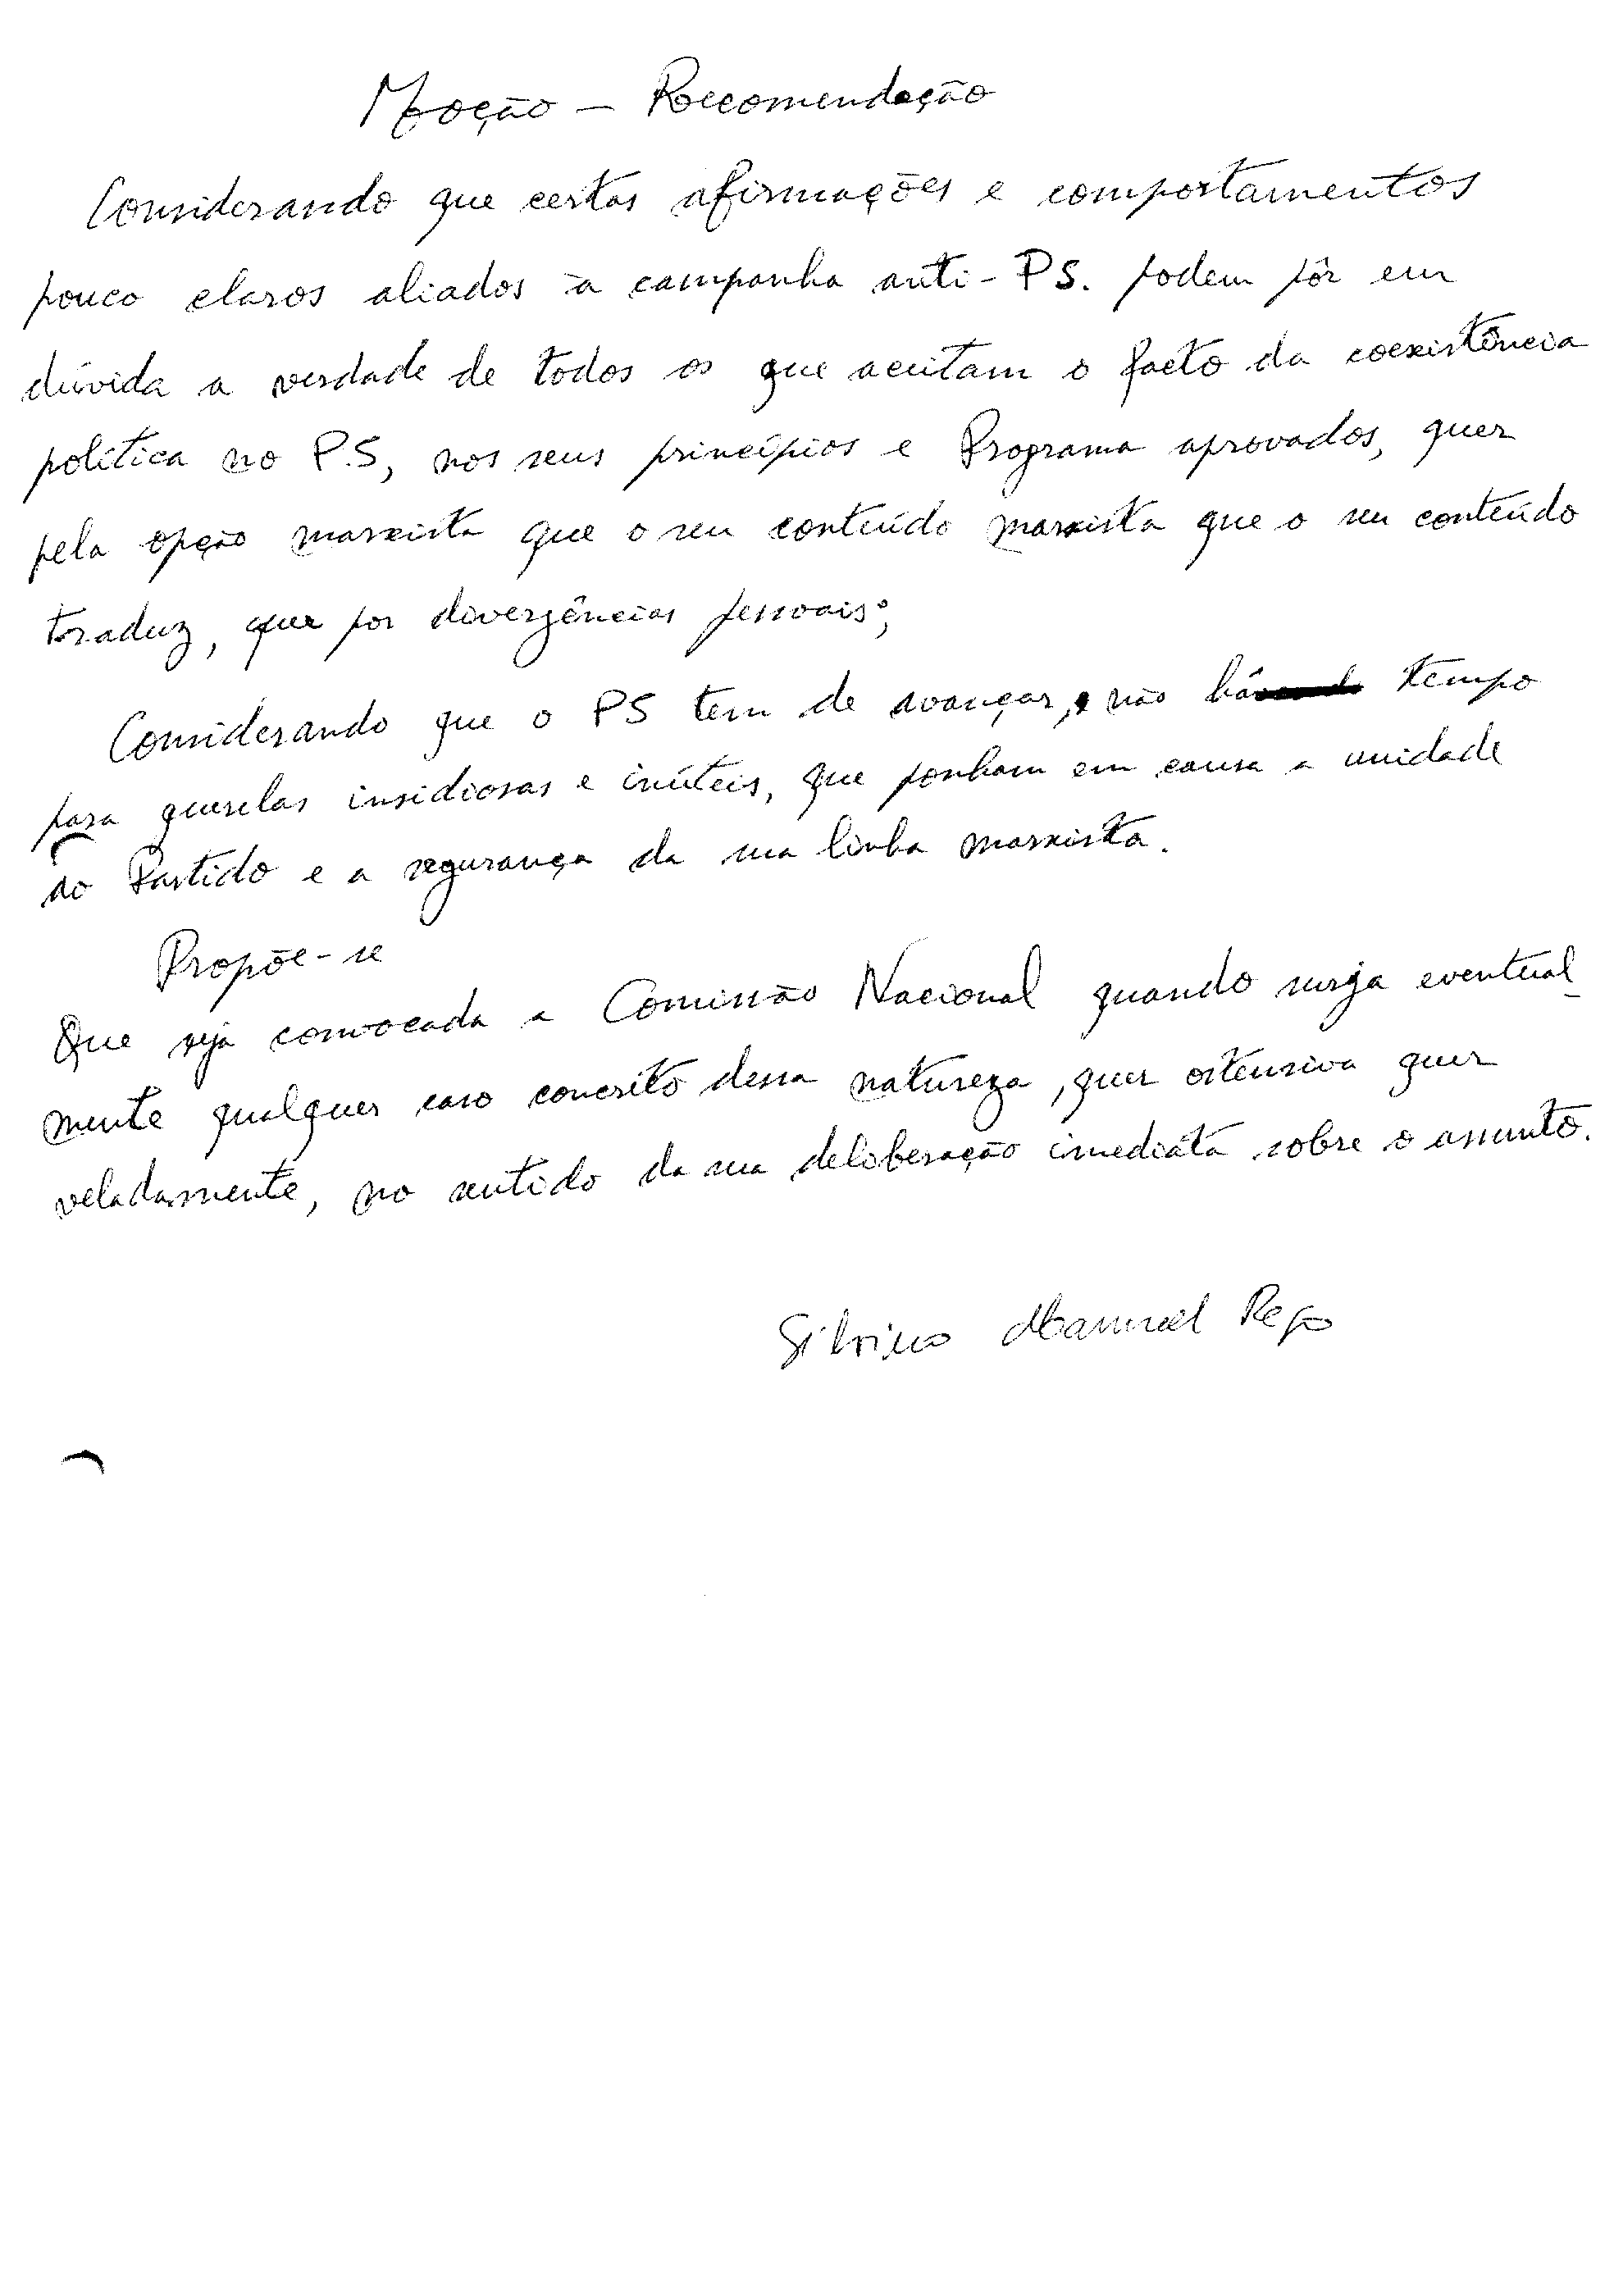 Moção – Recomendação
Considerando que certas afirmações e comportamentos
pouco claros aliados à campanha anti-PS. podem pôr em
dúvida a verdade de todos os que aceitam o facto da coexistência
política no P.S, nos seus princípios e Programa aprovados, quer
pela opção marxista que o seu conteúdo marxista que o seu conteúdo
traduz, quer por divergências pessoais;
Considerando que o PS tem de avançar, não há tempo
para querelas insidiosas e inúteis, que ponham em causa a unidade
do Partido e a segurança da sua linha marxista.
Propõe-se
Que seja convocada a Comissão Nacional quando surja eventual-
mente qualquer caso concreto dessa natureza, quer ostensiva quer
veladamente, no sentido da sua deliberação imediata sobre o assunto.
Silvino Manuel Rego